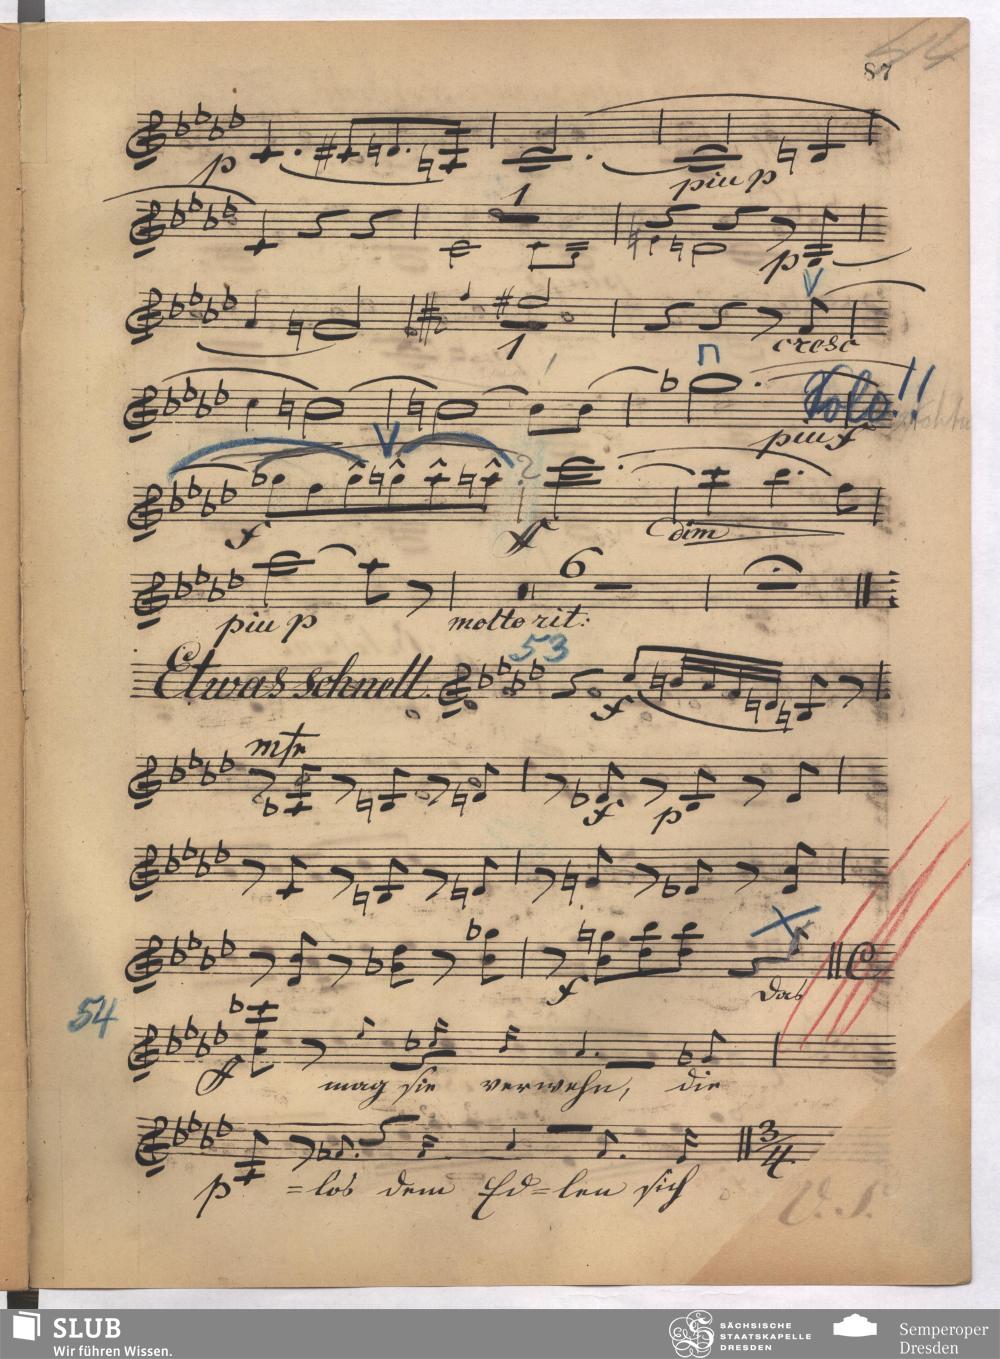 44
87
p
piu p
1
p
1
cresc
Solo!!
piu f
f
ff
dim
6
piu p
molto rit:
53
Etwas schnell.
f
f
p
f
das
54
ff
mag sie verwehn, die
3/4
p
=los dem Ed=len sich
V. S.
SLUB
Wir führen Wissen.
SÄCHSISCHE
STAATSKAPELLE
DRESDEN
Semperoper
Dresden